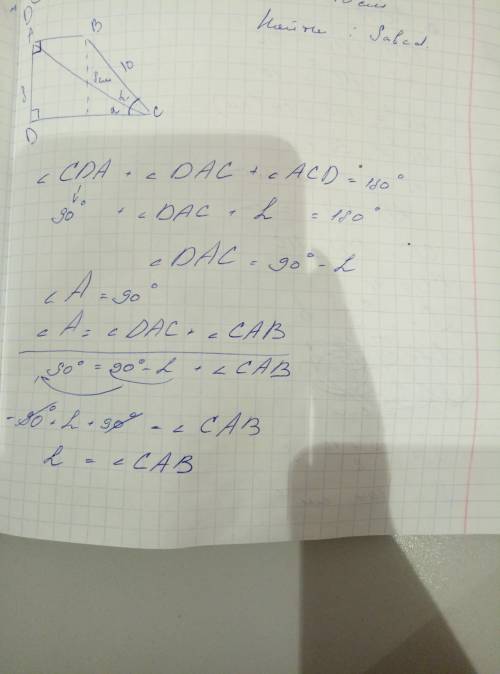 10 см
Найти : Sabcd.
D
A
B
10
8см
8
L
L
C
D
∠CDA + ∠DAC + ∠ACD = 180°
90° + ∠DAC + L = 180°
∠DAC = 90° - L
∠A = 90°
∠A = ∠DAC + ∠CAB
90° = 90° - L + ∠CAB
-90° + L + 90° = ∠CAB
L = ∠CAB